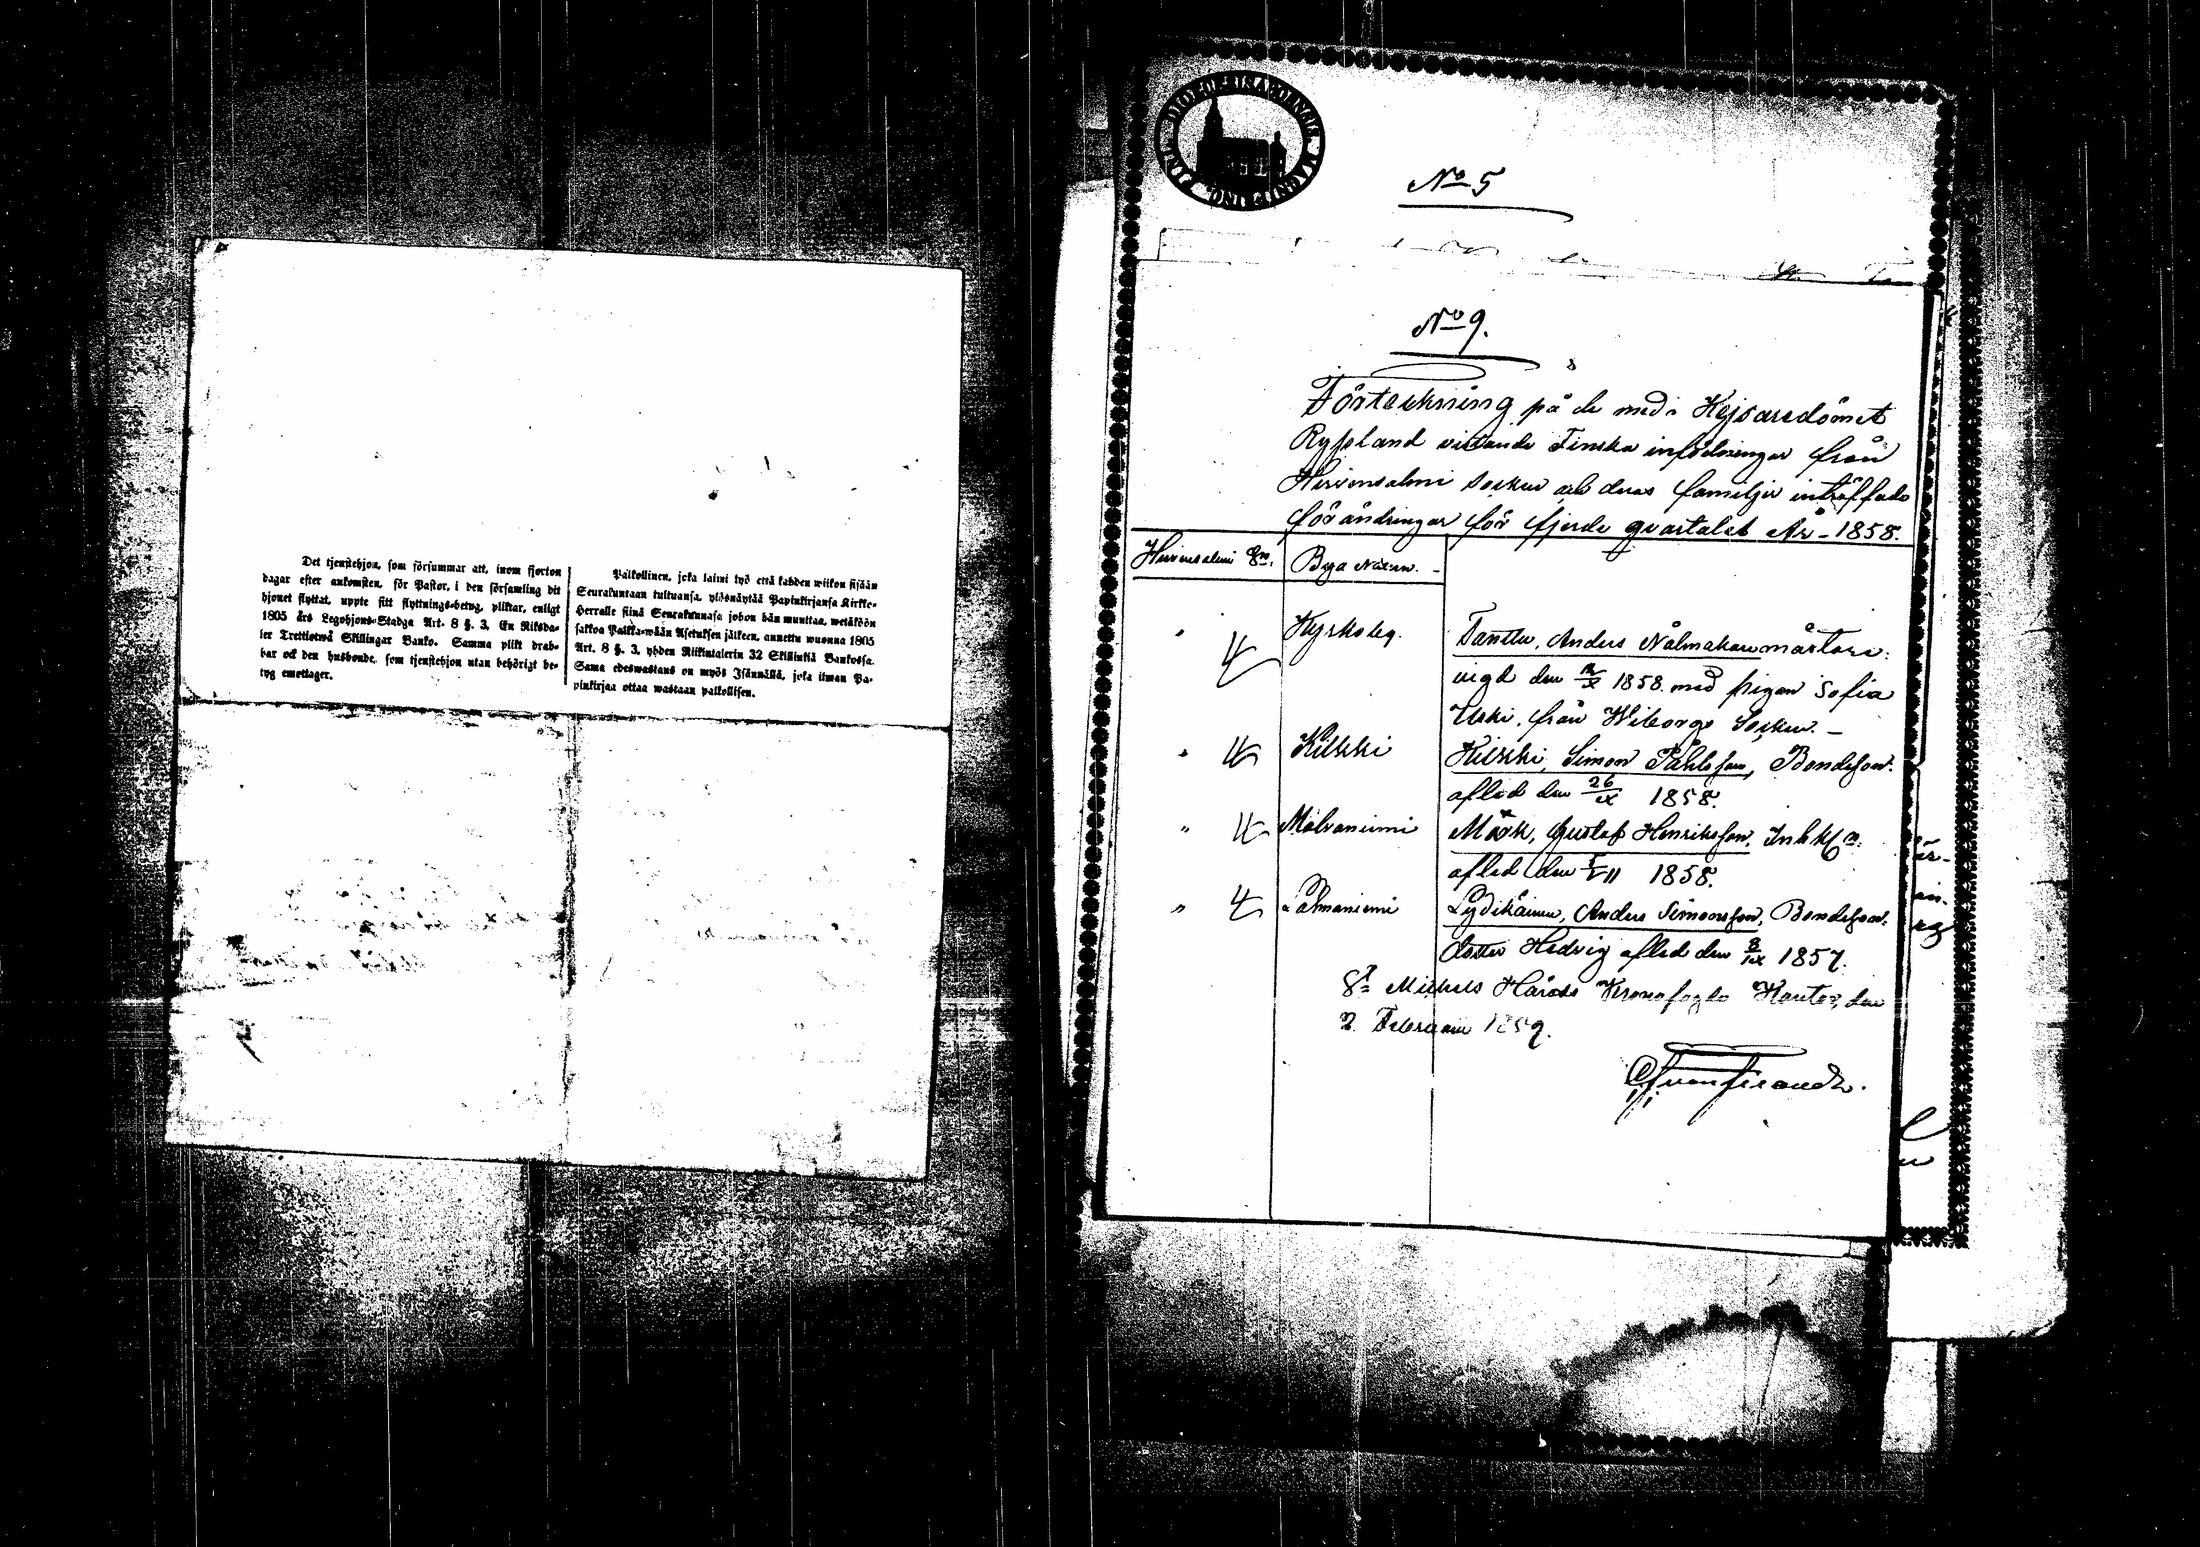 Det tjenstehjon, som försummar att, inom fjorton
dagar efter ankomsten, för Pastor, i den församling dit
hjonet flyttat, uppte sitt flyttnings-betyg, pliktar, enligt
1805 års Legohjons-Stadga Art. 8 §. 3. En Riksda-
ler Trettiotwå Skillingar Banko. Samma plikt drab-
bar ock den husbonde, som tjenstehjon utan behörigt be-
tyg emottager.
Palkollinen, joka laimi lyö että kahden wiikon sisään
Seurakuntaan tultuansa, ylösnäytää Papinkirjansa Kirkko-
Herralle siinä Seurakunnasa johon hän muuttaa, wetäköön
sakkoa Palkka-wään Asetuksen jälkeen, annettu wuonna 1805
Art. 8 §. 3, yhden Riikintalerin 32 Skillinkiä Bankossa.
Sama edeswastaus on myös Isännällä, joka ilman Pa-
pinkirjaa ottaa wastaan palkollisen.
No 5
No 9.
Förteckning på de med i Kejsaredömet
Ryssland vistande Finska infödningar från
Hirvensalmi Socken och deras familjer inträffade
förändringar för fjerde qvartalet År - 1858.
Hirvensalmi Sn. Bya Namn. -
" 4 Hyrkoleg.
vigd den 1858. med pigan Sofia
Uski, från Wiborgs Socken. -
" 4 Kilkki Kilkki, Simon Påhlsson, Bondeson.
afled den 26/IX 1858.
" 4 Malvaniemi Mörk, Gustaf Henriksson,
afled den 1858.
" 4 Lahnaniemi Lydikäinen, Anders Simonsson, Bondeson.
dotter Hedvig afled den 1857.
St Michels Härads Kronofogde Kontor, den
2. Februarii 1859.